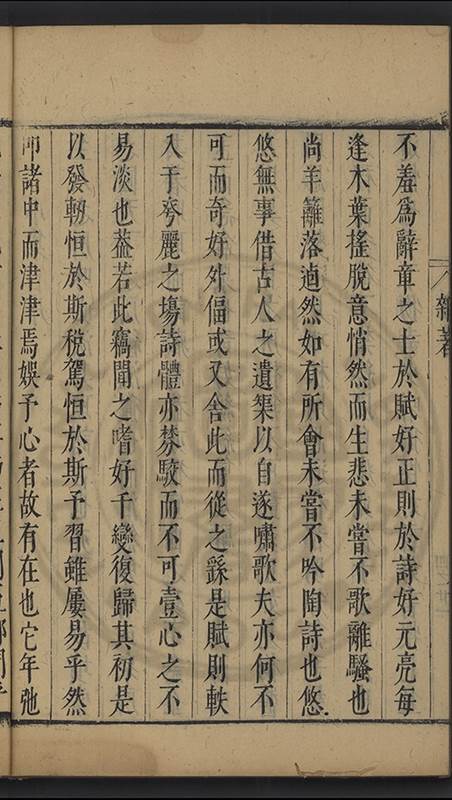 雜著
不羞爲辭章之士於賦好正則於詩好元亮每
逢木葉搖脫意悄然而生悲未嘗不歌離騷也
尚羊籬落逌然如有所會未嘗不吟陶詩也悠
悠無事借古人之遺榘以自遂嘯歌夫亦何不
可而奇好外偪或又舍此而從之繇是賦則軼
入于奇麗之場詩體亦棼駮而不可壹心之不
易淡也葢若此竊聞之嗜好千變復歸其初是
以發軔恒於斯稅駕恒於斯予習雖屢易乎然
卽諸中而津津焉娛予心者故有在也它年弛